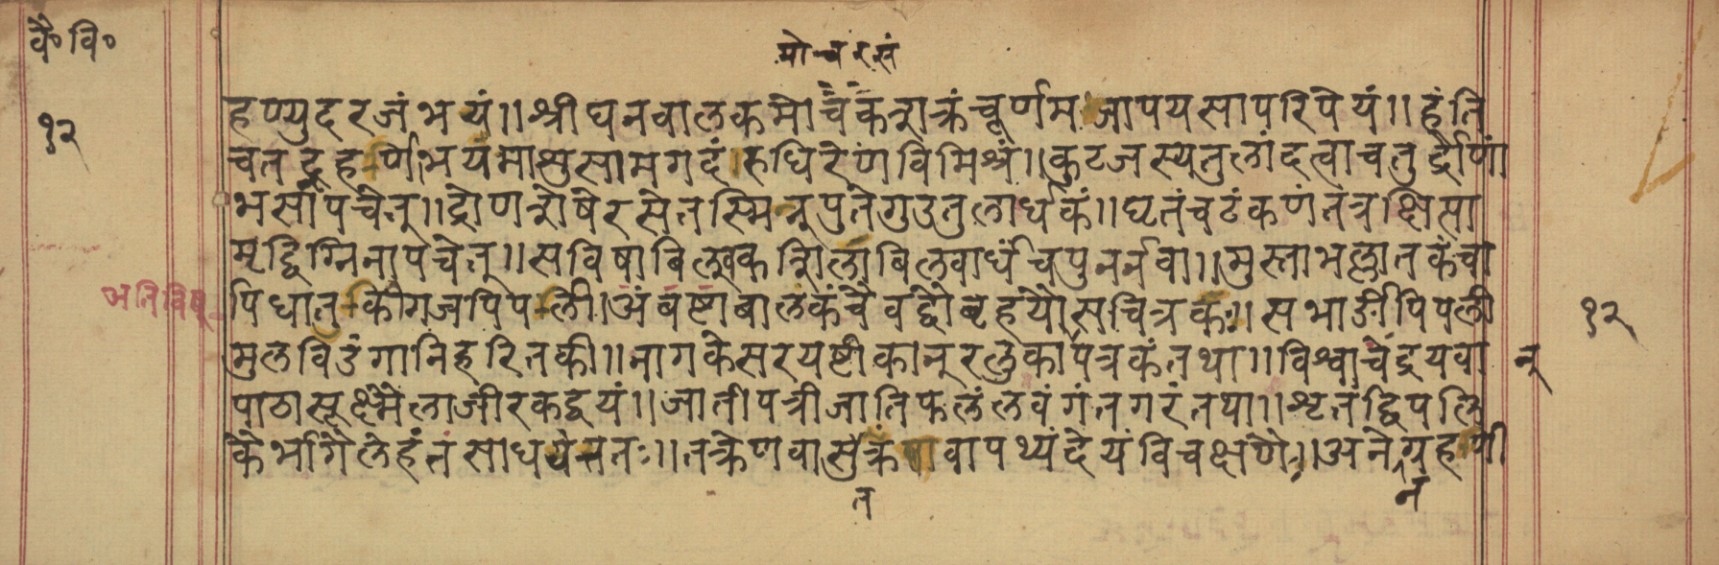 वै॰ वि॰
मोचरसं
१२
हण्युदरजं भयं॥ श्रीघनवालकमोचकशक्रं चूर्णमजापयसा परिपेयं॥ हंति
च तद्ग्रहणीभयमाशु सामगदं रुधिरेण विमिश्रं॥ कुटजस्य तुलां दत्वा चतुर्द्रोणां
भसां पचेत्॥ द्रोणशेषे रसे तस्मिन् पुते गुडतुलार्धकं॥ घृतं च टंकणं तत्र क्षिप्त्वा
मृद्वग्निना पचेत्॥ सविषा बिल्व विलवार्धं च पुनर्नवा॥ मुस्ता भल्लातकं चा
अतिविष
पि धातुकी गजपिपली। अंबष्टा बालकं चैव द्वौ बृहत्यौ सचित्रक॥ सभार्ङी पिपली
१२
मुल विडंगानि हरितकी॥ नागकेसरयष्टीका पत्रकं तथा॥ विश्वा चेंद्रयवा न्
पाठा सूक्ष्मैला जीरकद्वयं॥ जातीपत्री जातिफलं लवंगं तगरं तथा॥ शृतं द्विपलि
कैर्भागैर्लेहं तं साधयेत्ततः॥ तक्रेण वा वा पथ्यं देयं विचक्षणैः॥ अने ग्रहणी
त
न